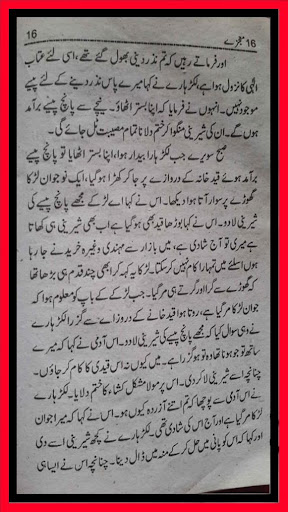 16 معجزے 16
اور فرماتے رہیں کہ تم نذر دینی بھول گئے تھے، اسی لئے عتاب
الٰہی کا نزول ہوا ہے، لکڑہارے نے کہا میرے پاس نذر دینے کے لئے پیسے
موجود نہیں۔ انہوں نے فرمایا کہ اپنا بستر اٹھاؤ۔ نیچے سے پانچ پیسے برآمد
ہوں گے۔ ان کی شیرینی منگوا کر ختم دلانا تمام مصیبت ٹل جائے گی۔
صبح سویرے جب لکڑہارا بیدار ہوا، اپنا بستر اٹھایا تو پانچ پیسے
برآمد ہوئے قید خانہ کے دروازے پر جا کر کھڑا ہو گیا، ایک نوجوان لڑکا
گھوڑے پر سوار آ رہا تھا۔ اس نے کہا اے لڑکے مجھے پانچ پیسے کی
شیرینی لا دو۔ اس نے کہا بوڑھا قید بھی ہو گیا ہے اب بھی شیرینی ہی کھاتا
ہے میری تو آج شادی ہے، میں بازار سے مہندی وغیرہ خرید نے جا رہا
ہوں اسلئے میں تمہارا کام نہیں کر سکتا۔ لڑکا یہ کہہ کر ابھی چند قدم ہی بڑھا تھا
کہ گھوڑے سے گرا اور گرتے ہی مر گیا۔ جب لڑکے کے باپ کو معلوم ہوا کہ
جوان لڑکا مر گیا ہے، روتا ہوا قید خانے کے دروازے سے گزرا لکڑہارے
نے وہی سوال کیا کہ مجھے پانچ پیسے کی شیرینی لا دو۔ اس آدمی نے کہا کہ میرے
ساتھ تو جو ہونا تھا وہ تو ہو گزرا ہے۔ میں کیوں نہ اس قیدی کا کام کر جاؤں۔
چنانچہ اسے شیرینی لا کر دی۔ اس پر مولا مشکل کشاء کا ختم دلایا۔ لکڑہارے
نے اس آدمی سے پوچھا کہ تم اتنے آزردہ کیوں ہو۔ اس نے کہا کہ میرا جوان
لڑکا مر گیا ہے اور آج اس کی شادی تھی۔ لکڑہارے نے کچھ شیرینی اسے دی
اور کہا کہ اس کو پانی میں حل کر کے منہ میں ڈال دینا۔ چنانچہ اس نے ایسا ہی